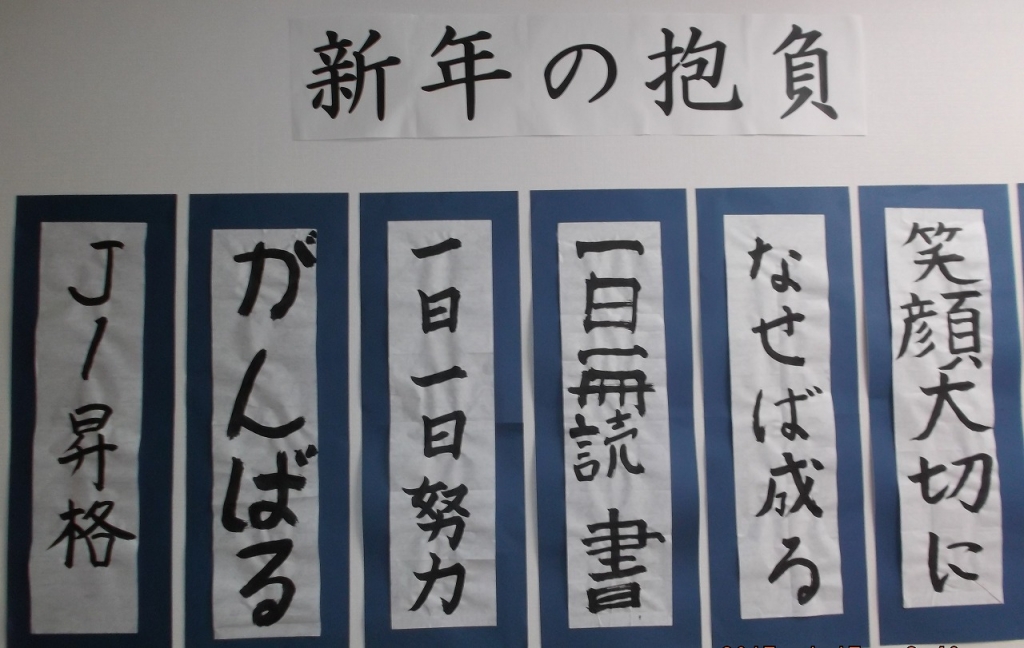 新年の抱負
笑顔大切に
なせば成る
一日一冊読書
一日一日努力
がんばる
J1昇格